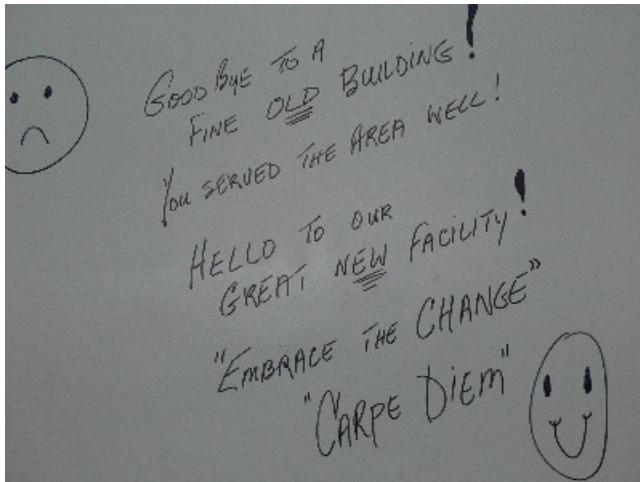 GOOD BYE TO A
FINE OLD BUILDING!
YOU SERVED THE AREA WELL!
HELLO TO OUR
GREAT NEW FACILITY!
"EMBRACE THE CHANGE"
"CARPE DIEM"